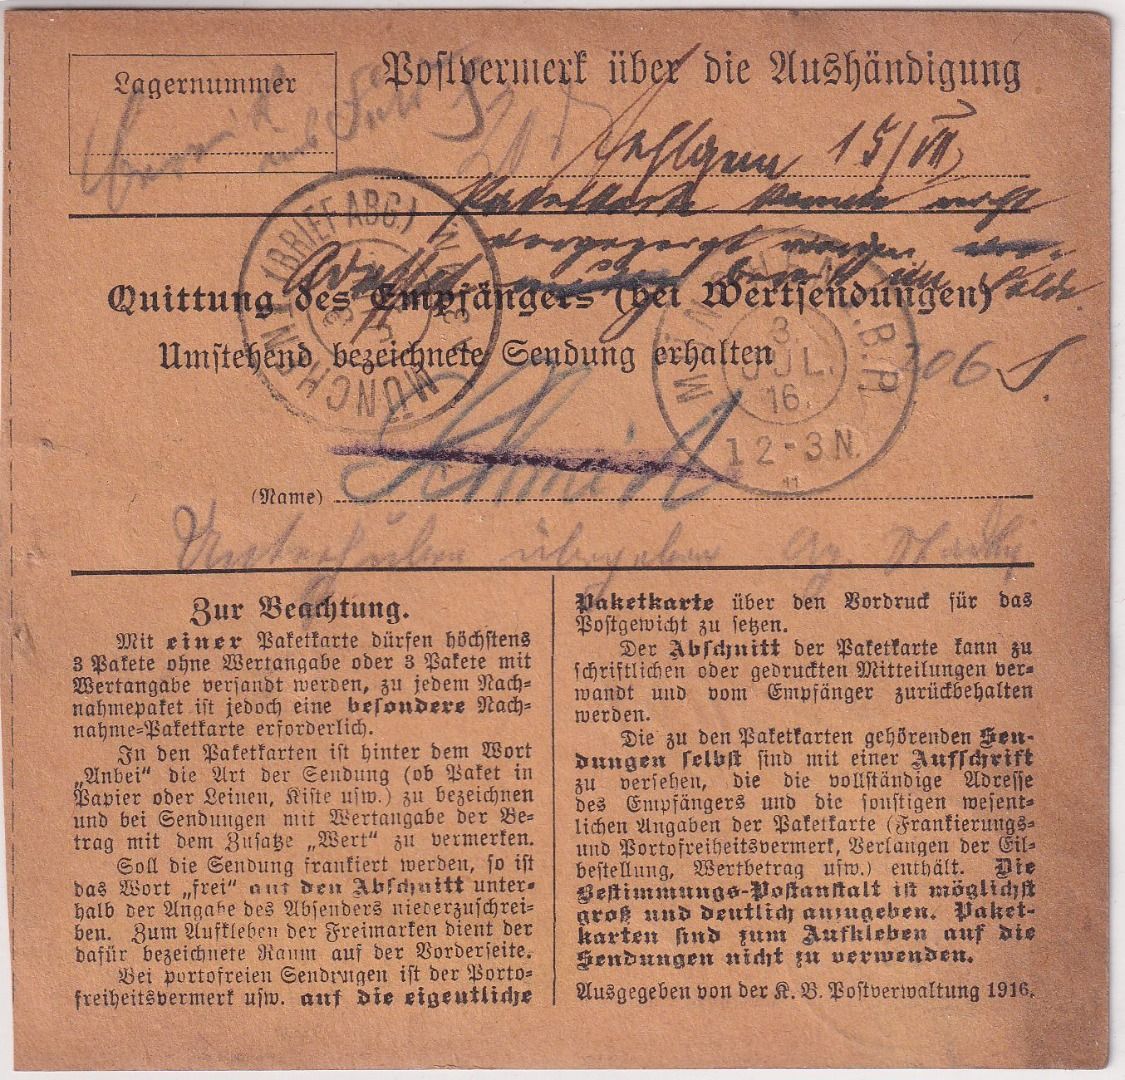 Lagernummer
Postvermerk über die Aushändigung
15/VII
Paketkarte konnte nicht
vorgezeigt werden
Quittung des Empfängers (bei Wertsendungen)
Umstehend bezeichnete Sendung erhalten
206
MÜNCHEN (BRIEF ABG.)
MÜNCHEN B.P.
3.
JUL.
16.
12-3N.
11
Schmidt
(Name)
übergeben
Zur Beachtung.
Mit einer Paketkarte dürfen höchstens
3 Pakete ohne Wertangabe oder 3 Pakete mit
Wertangabe versandt werden, zu jedem Nach-
nahmepaket ist jedoch eine besondere Nach-
nahme-Paketkarte erforderlich.
In den Paketkarten ist hinter dem Wort
„Anbei“ die Art der Sendung (ob Paket in
Papier oder Leinen, Kiste usw.) zu bezeichnen
und bei Sendungen mit Wertangabe der Be-
trag mit dem Zusatze „Wert“ zu vermerken.
Soll die Sendung frankiert werden, so ist
das Wort „frei“ auf den Abschnitt unter-
halb der Angabe des Absenders niederzuschrei-
ben. Zum Aufkleben der Freimarken dient der
dafür bezeichnete Raum auf der Vorderseite.
Bei portofreien Sendungen ist der Porto-
freiheitsvermerk usw. auf die eigentliche
Paketkarte über den Vordruck für das
Postgewicht zu setzen.
Der Abschnitt der Paketkarte kann zu
schriftlichen oder gedruckten Mitteilungen ver-
wandt und vom Empfänger zurückbehalten
werden.
Die zu den Paketkarten gehörenden Sen-
dungen selbst sind mit einer Aufschrift
zu versehen, die die vollständige Adresse
des Empfängers und die sonstigen wesent-
lichen Angaben der Paketkarte (Frankierungs-
und Portofreiheitsvermerk, Verlangen der Eil-
bestellung, Wertbetrag usw.) enthält. Die
Bestimmungs-Postanstalt ist möglichst
groß und deutlich anzugeben. Paket-
karten sind zum Aufkleben auf die
Sendungen nicht zu verwenden.
Ausgegeben von der K. B. Postverwaltung 1916.